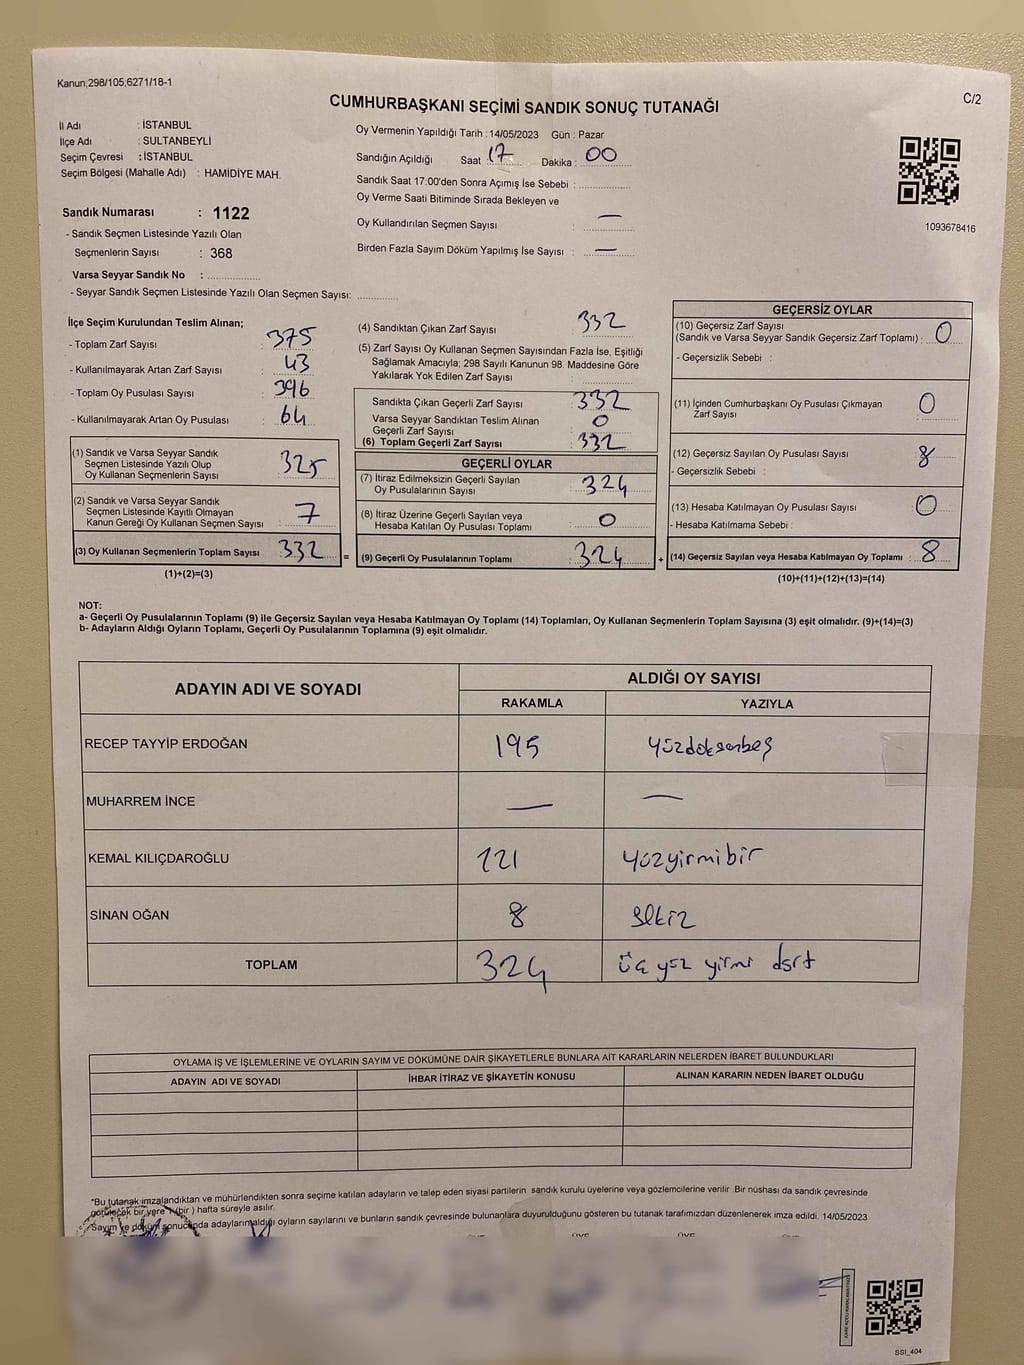 Kanun;298/105;6271/18-1
C/2
CUMHURBAŞKANI SEÇİMİ SANDIK SONUÇ TUTANAĞI
İl Adı : İSTANBUL
İlçe Adı : SULTANBEYLİ
Seçim Çevresi : İSTANBUL
Seçim Bölgesi (Mahalle Adı) : HAMİDİYE MAH.
Sandık Numarası : 1122
- Sandık Seçmen Listesinde Yazılı Olan
Seçmenlerin Sayısı : 368
Varsa Seyyar Sandık No :
- Seyyar Sandık Seçmen Listesinde Yazılı Olan Seçmen Sayısı:
Oy Vermenin Yapıldığı Tarih : 14/05/2023 Gün : Pazar
Sandığın Açıldığı Saat : 17 Dakika : 00
Sandık Saat 17:00'den Sonra Açımış İse Sebebi :
Oy Verme Saati Bitiminde Sırada Bekleyen ve
Oy Kullandırılan Seçmen Sayısı : —
Birden Fazla Sayım Döküm Yapılmış İse Sayısı : —
1093678416
İlçe Seçim Kurulundan Teslim Alınan;
- Toplam Zarf Sayısı : 375
- Kullanılmayarak Artan Zarf Sayısı : 43
- Toplam Oy Pusulası Sayısı : 396
- Kullanılmayarak Artan Oy Pusulası : 64
(1) Sandık ve Varsa Seyyar Sandık
Seçmen Listesinde Yazılı Olup
Oy Kullanan Seçmenlerin Sayısı : 325
(2) Sandık ve Varsa Seyyar Sandık
Seçmen Listesinde Kayıtlı Olmayan
Kanun Gereği Oy Kullanan Seçmen Sayısı : 7
(3) Oy Kullanan Seçmenlerin Toplam Sayısı : 332
(1)+(2)=(3)
=
(4) Sandıktan Çıkan Zarf Sayısı : 332
(5) Zarf Sayısı Oy Kullanan Seçmen Sayısından Fazla İse, Eşitliği
Sağlamak Amacıyla; 298 Sayılı Kanunun 98. Maddesine Göre
Yakılarak Yok Edilen Zarf Sayısı :
Sandıkta Çıkan Geçerli Zarf Sayısı : 332
Varsa Seyyar Sandıktan Teslim Alınan
Geçerli Zarf Sayısı : 0
(6) Toplam Geçerli Zarf Sayısı : 332
GEÇERLİ OYLAR
(7) İtiraz Edilmeksizin Geçerli Sayılan
Oy Pusulalarının Sayısı : 324
(8) İtiraz Üzerine Geçerli Sayılan veya
Hesaba Katılan Oy Pusulası Toplamı : 0
(9) Geçerli Oy Pusulalarının Toplamı : 324
+
GEÇERSİZ OYLAR
(10) Geçersiz Zarf Sayısı
(Sandık ve Varsa Seyyar Sandık Geçersiz Zarf Toplamı) : 0
- Geçersizlik Sebebi :
(11) İçinden Cumhurbaşkanı Oy Pusulası Çıkmayan
Zarf Sayısı : 0
(12) Geçersiz Sayılan Oy Pusulası Sayısı : 8
- Geçersizlik Sebebi :
(13) Hesaba Katılmayan Oy Pusulası Sayısı : 0
- Hesaba Katılmama Sebebi :
(14) Geçersiz Sayılan veya Hesaba Katılmayan Oy Toplamı : 8
(10)+(11)+(12)+(13)=(14)
NOT:
a- Geçerli Oy Pusulalarının Toplamı (9) ile Geçersiz Sayılan veya Hesaba Katılmayan Oy Toplamı (14) Toplamları, Oy Kullanan Seçmenlerin Toplam Sayısına (3) eşit olmalıdır. (9)+(14)=(3)
b- Adayların Aldığı Oyların Toplamı, Geçerli Oy Pusulalarının Toplamına (9) eşit olmalıdır.
ADAYIN ADI VE SOYADI
ALDIĞI OY SAYISI
RAKAMLA YAZIYLA
RECEP TAYYİP ERDOĞAN 195 yüzdoksanbeş
MUHARREM İNCE — —
KEMAL KILIÇDAROĞLU 121 yüzyirmibir
SİNAN OĞAN 8 sekiz
TOPLAM 324 üç yüz yirmi dört
OYLAMA İŞ VE İŞLEMLERİNE VE OYLARIN SAYIM VE DÖKÜMÜNE DAİR ŞİKAYETLERLE BUNLARA AİT KARARLARIN NELERDEN İBARET BULUNDUKLARI
ADAYIN ADI VE SOYADI İHBAR İTİRAZ VE ŞİKAYETİN KONUSU ALINAN KARARIN NEDEN İBARET OLDUĞU
*Bu tutanak imzalandıktan ve mühürlendikten sonra seçime katılan adayların ve talep eden siyasi partilerin sandık kurulu üyelerine veya gözlemcilerine verilir. Bir nüshası da sandık çevresinde
görülecek bir yere 1 (bir) hafta süreyle asılır.
Sayım ve döküm sonucunda adayların aldığı oyların sayılarını ve bunların sandık çevresinde bulunanlara duyurulduğunu gösteren bu tutanak tarafımızdan düzenlenerek imza edildi. 14/05/2023
SSI_404